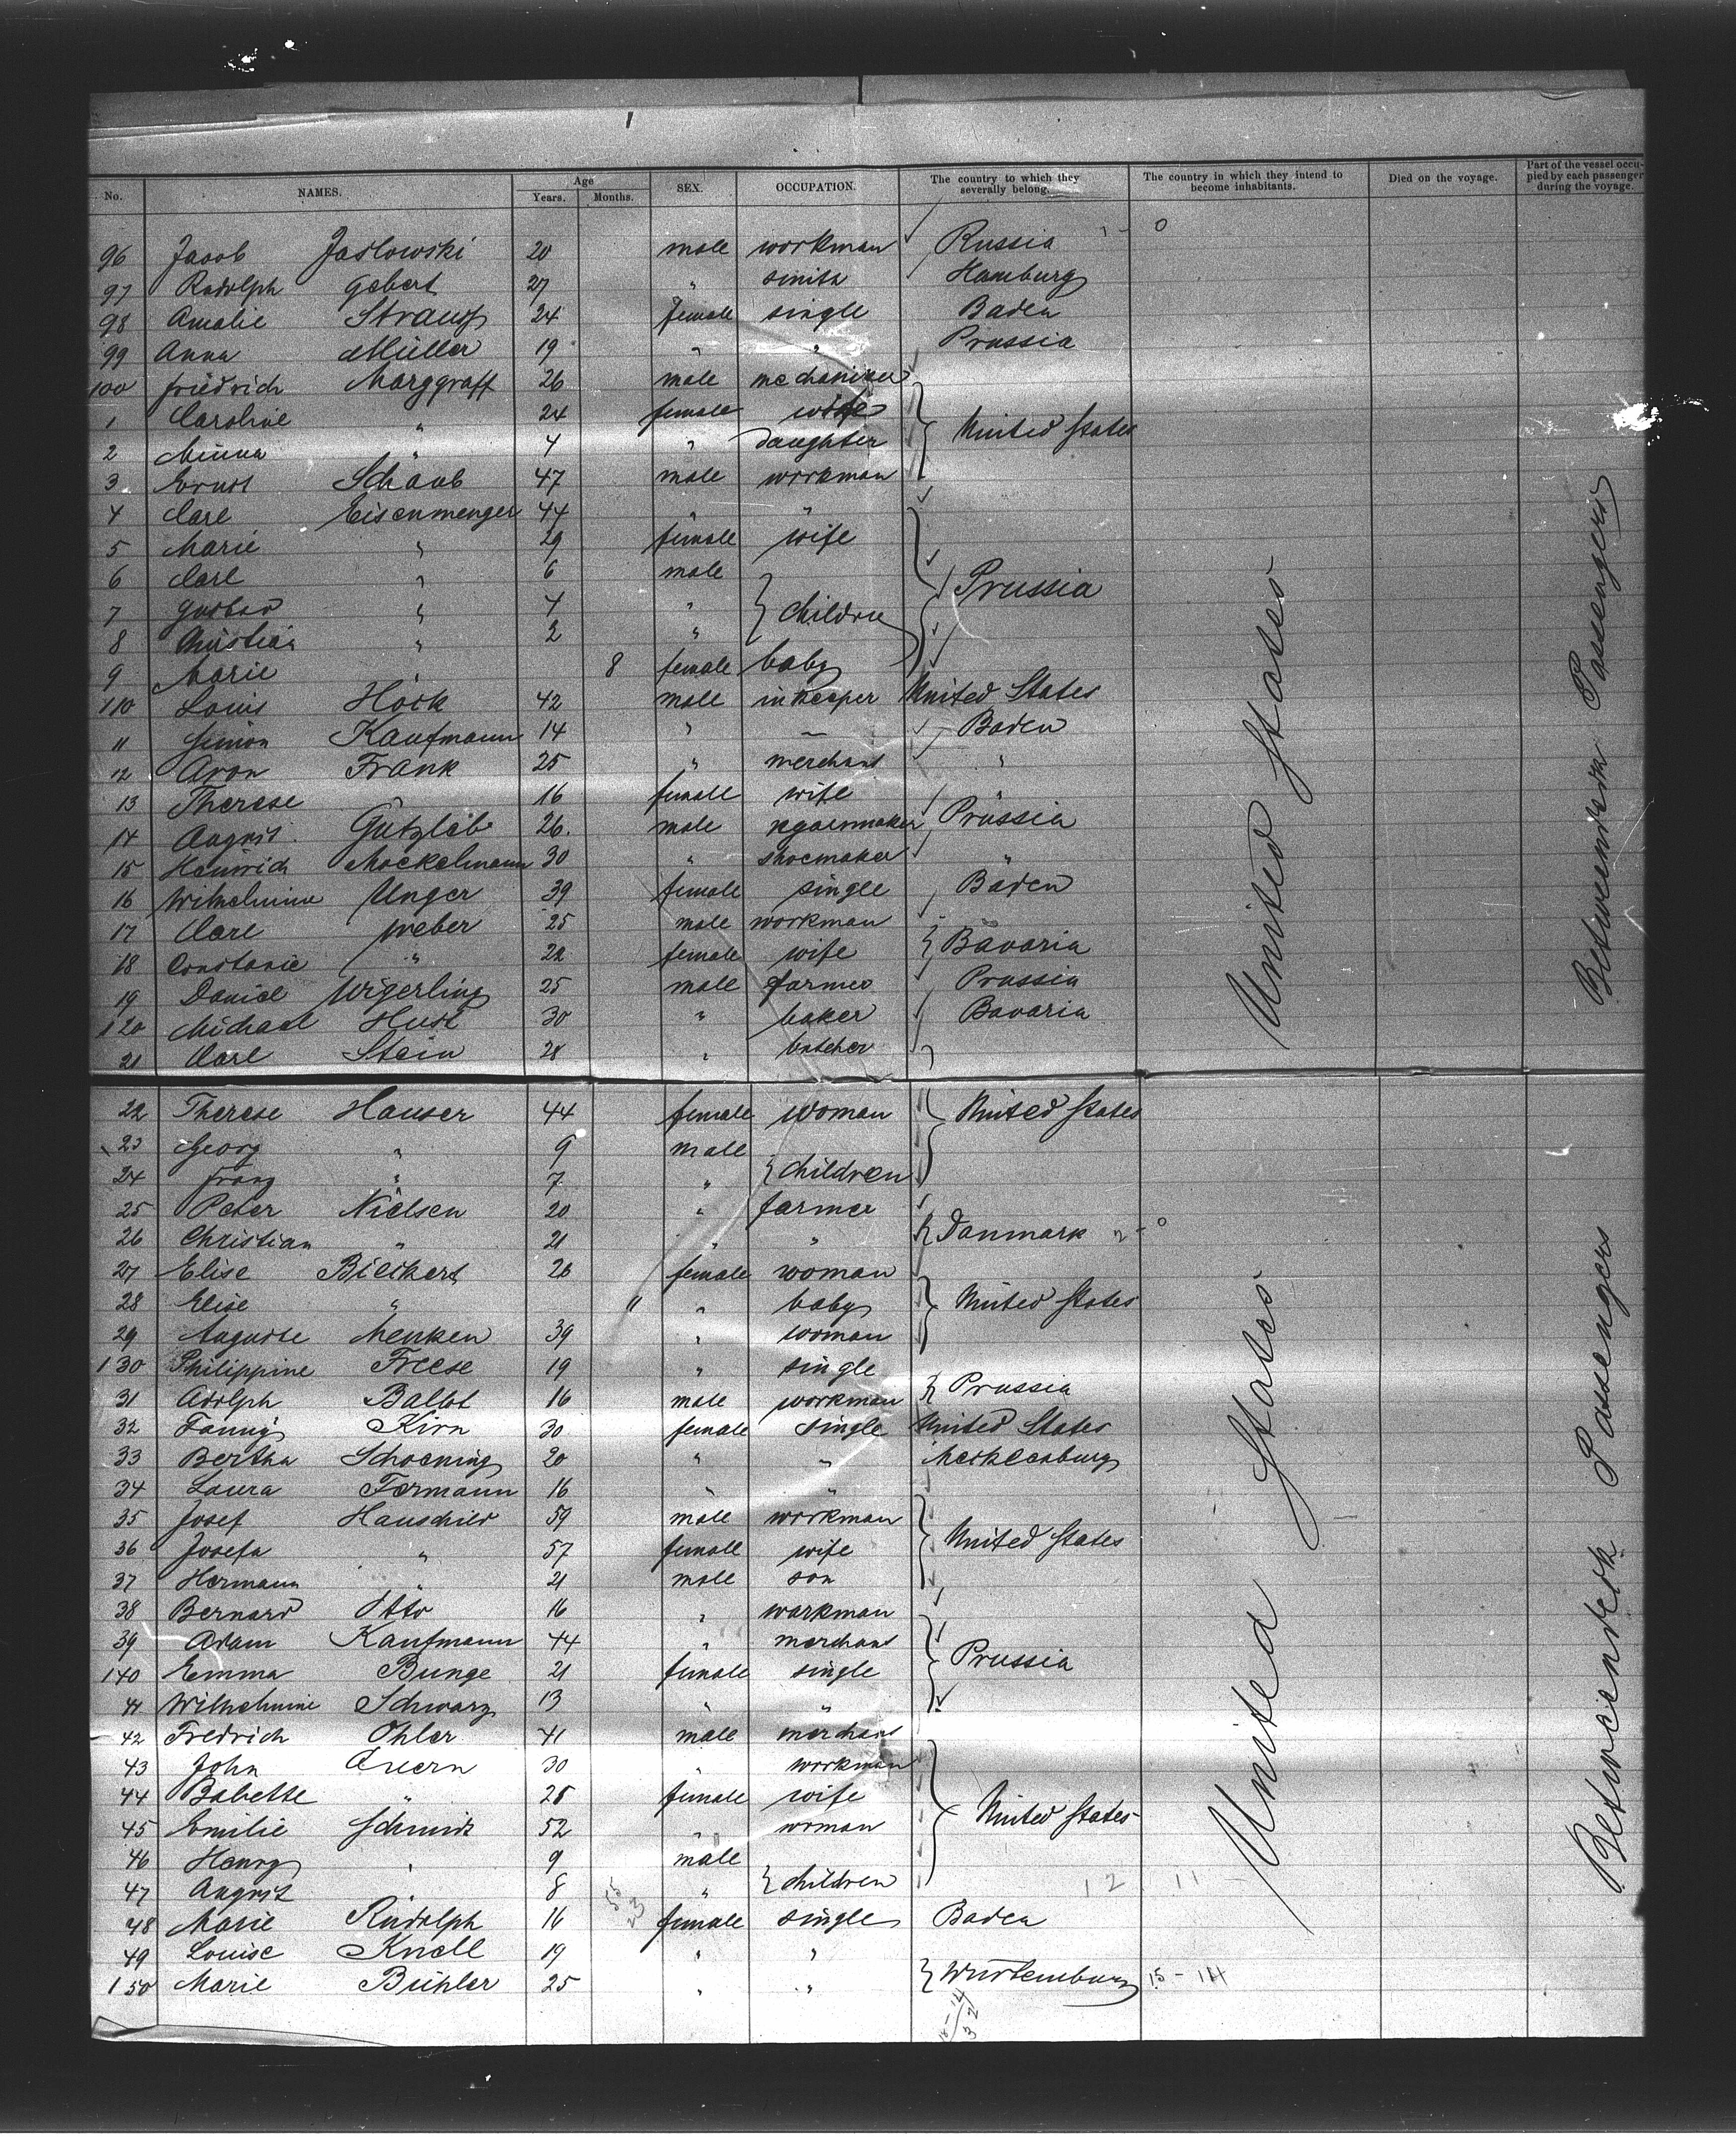 No. NAMES. Age Years. Months. SEX. OCCUPATION. The country to which they severally belong. The country in which they intend to become inhabitants. Died on the voyage. Part of the vessel occupied by each passenger during the voyage.
96 Jacob Jaslowski 20 male workman Russia
97 Rudolph Gebert 27 " smith Hamburg
98 Amalie Strauss 24 female single Baden
99 Anna Müller 19 " " Prussia
100 Friedrich Marggraff 26 male mechaniker
1 Caroline " 24 female wife United States
2 Minna " 4 " daughter
3 Ernst Schaub 47 male workman
4 Carl Eisenmenger 44 " "
5 Marie " 29 female wife
6 Carl " 6 male
7 Gustav " 4 " children Prussia
8 Christian " 2 "
9 Marie 8 female baby
110 Louis Höck 42 male inkeeper United States
11 Simon Kaufmann 14 " — Baden
12 Aron Frank 25 " merchant "
13 Therese " 16 female wife "
14 August Gutzleb 26. male Prussia
15 Heinrich Mockelmann 30 " shoemaker "
16 Wilhelmine Unger 39 female single Baden
17 Carl Weber 25 male workman
18 Constanie " 22 female wife Bavaria
19 Daniel Wigerling 25 male farmer Prussia
120 Michael Hust 30 " baker Bavaria
21 Carl Stein 28 " butcher
22 Therese Hauser 44 female woman United States
23 Georg " 9 male
24 Franz " 7 " children
25 Peter Nielsen 20 " farmer
26 Christian " 21 " " Danmark
27 Elise Bleikert 26 female woman
28 Elise " 11 " baby United States
29 Auguste Menken 39 " woman
130 Philippine Freese 19 " single
31 Adolph Ballot 16 male workman Prussia
32 Fanny Kirn 30 female single United States
33 Bertha Schoening 20 " " Mecklenburg
34 Laura Formann 16 " "
35 Josef Hauschild 59 male workman
36 Josefa " 57 female wife United States
37 Hermann " 21 male son
38 Bernard Otto 16 " workman
39 Adam Kaufmann 44 " merchant
140 Emma Bunge 21 female single Prussia
41 Wilhelmine Schwarz 13 " "
42 Fredrich Ohler 41 male merchant
43 John Quern 30 " workman
44 Babette " 28 female wife
45 Emilie Schmidt 52 " woman United States
46 Henry " 9 male
47 August 8 " children 12 11
48 Marie Rudolph 16 female single Baden
49 Louise Knell 19 " "
150 Marie Bühler 25 " " Würtemburg 15 - 14
United States
Betweendeck Passengers
United States
Betweendeck Passengers